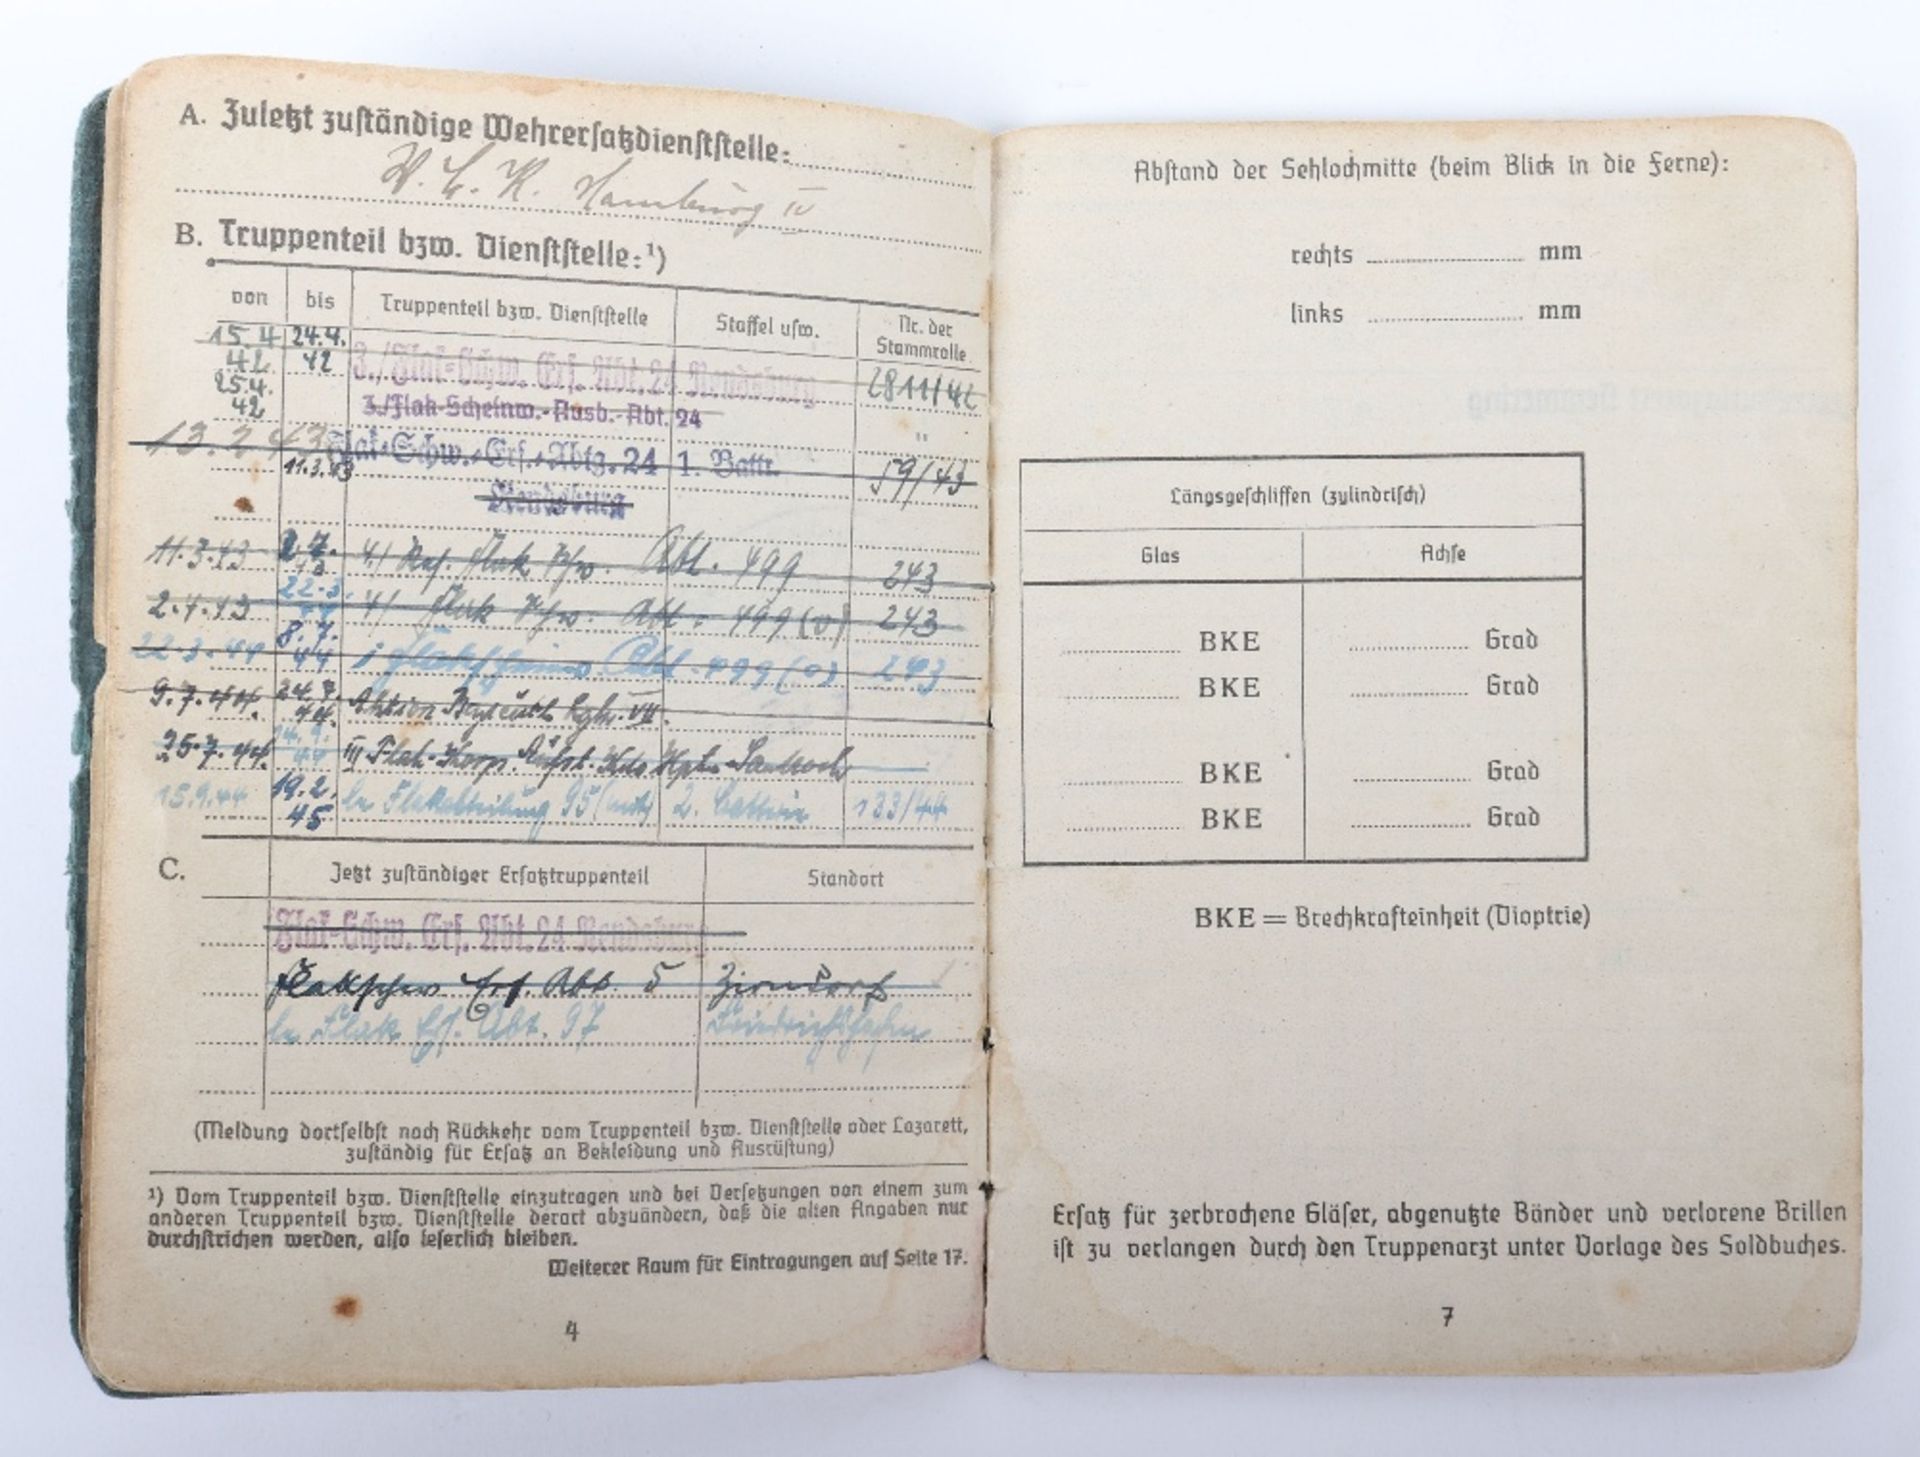 A. Zuletzt zuständige Wehrersatzdienststelle:
W. B. K. Hamburg IV
B. Truppenteil bzw. Dienststelle:¹)
von bis Truppenteil bzw. Dienststelle Staffel usw. Nr. der Stammrolle
15.4. 42 24.4. 42 3./Flak-Schw. Ers. Abt. 24 Rendsburg 2811/42
25.4. 42 3./Flak-Scheinw.-Ausb.-Abt. 24 "
13.2.43 11.3.43 Flak-Schw.-Ers.-Abtg. 24 1. Battr. 59/43
Rendsburg
11.3.43 4./ Res. Flak Abt. 499 243
2.4.43 22.3. 4/ Flak Abt. 499 (v) 243
22.3.44 8.7. 44 Abt. 499 (v) 243
9.7.44. 24.7. 44. VII.
25.7.44. III Flak-Korps Kdo
15.9.44 19.2. 45 le Flakabteilung 95 (mot) 2. Batterie 133/44
C. Jetzt zuständiger Ersatztruppenteil Standort
Flak-Schw. Ers. Abt. 24 Rendsburg
Flakschw Ers. Abt. 5 Zirndorf
le Flak Ers. Abt. 97 Friedrichshafen
(Meldung dortselbst nach Rückkehr vom Truppenteil bzw. Dienststelle oder Lazarett,
zuständig für Ersatz an Bekleidung und Ausrüstung)
¹) Vom Truppenteil bzw. Dienststelle einzutragen und bei Versetzungen von einem zum
anderen Truppenteil bzw. Dienststelle derart abzuändern, daß die alten Angaben nur
durchstrichen werden, also leserlich bleiben.
Weiterer Raum für Eintragungen auf Seite 17.
4
Abstand der Sehlochmitte (beim Blick in die Ferne):
rechts mm
links mm
Längsgeschliffen (zylindrisch)
Glas Achse
BKE Grad
BKE Grad
BKE Grad
BKE Grad
BKE = Brechkrafteinheit (Dioptrie)
Ersatz für zerbrochene Gläser, abgenutzte Bänder und verlorene Brillen
ist zu verlangen durch den Truppenarzt unter Vorlage des Soldbuches.
7